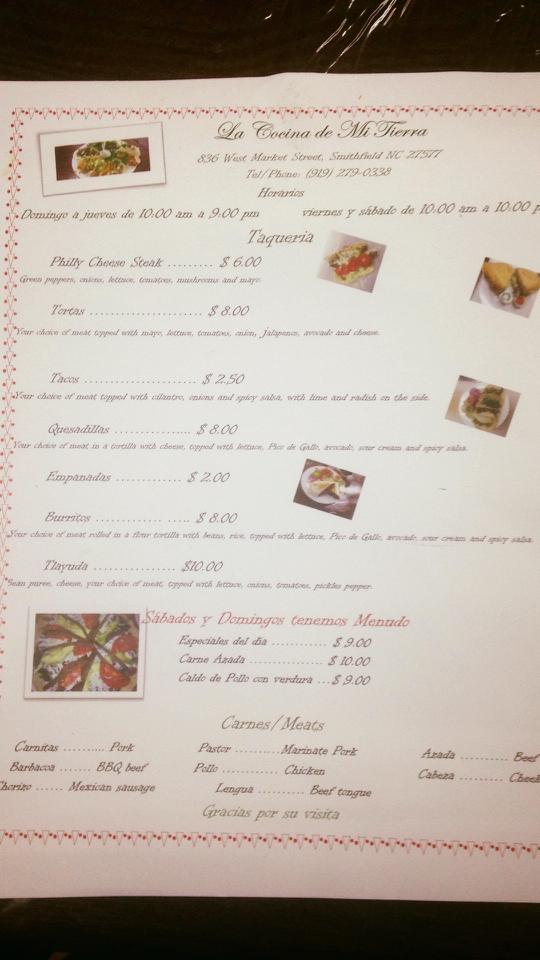 La Cocina de Mi Tierra
836 West Market Street, Smithfield NC 27577
Tel/Phone: (919) 279-0338
Horarios
Domingo a jueves de 10:00 am a 9:00 pm viernes y sábado de 10:00 am a 10:00 p
Taqueria
Philly Cheese Steak ......... $ 6.00
Green peppers, onions, lettuce, tomatoes, mushrooms and mayo.
Tortas ...................... $ 8.00
Your choice of meat topped with mayo, lettuce, tomatoes, onion, jalapenos, avocado and cheese.
Tacos ...................... $ 2.50
Your choice of meat topped with cilantro, onions and spicy salsa, with lime and radish on the side.
Quesadillas ................. $ 8.00
Your choice of meat in a tortilla with cheese, topped with lettuce, Pico de Gallo, avocado, sour cream and spicy salsa.
Empanadas ............. $ 2.00
Burritos ............. ..... $ 8.00
Your choice of meat rolled in a flour tortilla with beans, rice, topped with lettuce, Pico de Gallo, avocado, sour cream and spicy salsa.
Tlayuda ................ $10.00
Bean puree, cheese, your choice of meat, topped with lettuce, onions, tomatoes, pickles pepper.
Sábados y Domingos tenemos Menudo
Especiales del dia ........... $ 9.00
Carne Azada ............... $ 10.00
Caldo de Pollo con verdura ...$ 9.00
Carnes/Meats
Carnitas .......... Pork Pastor ...........Marinate Pork Azada .......... Beef
Barbacoa ....... BBQ beef Pollo ........... Chicken Cabeza .......... Cheek
Chorizo ...... Mexican sausage Lengua .......... Beef tongue
Gracias por su visita